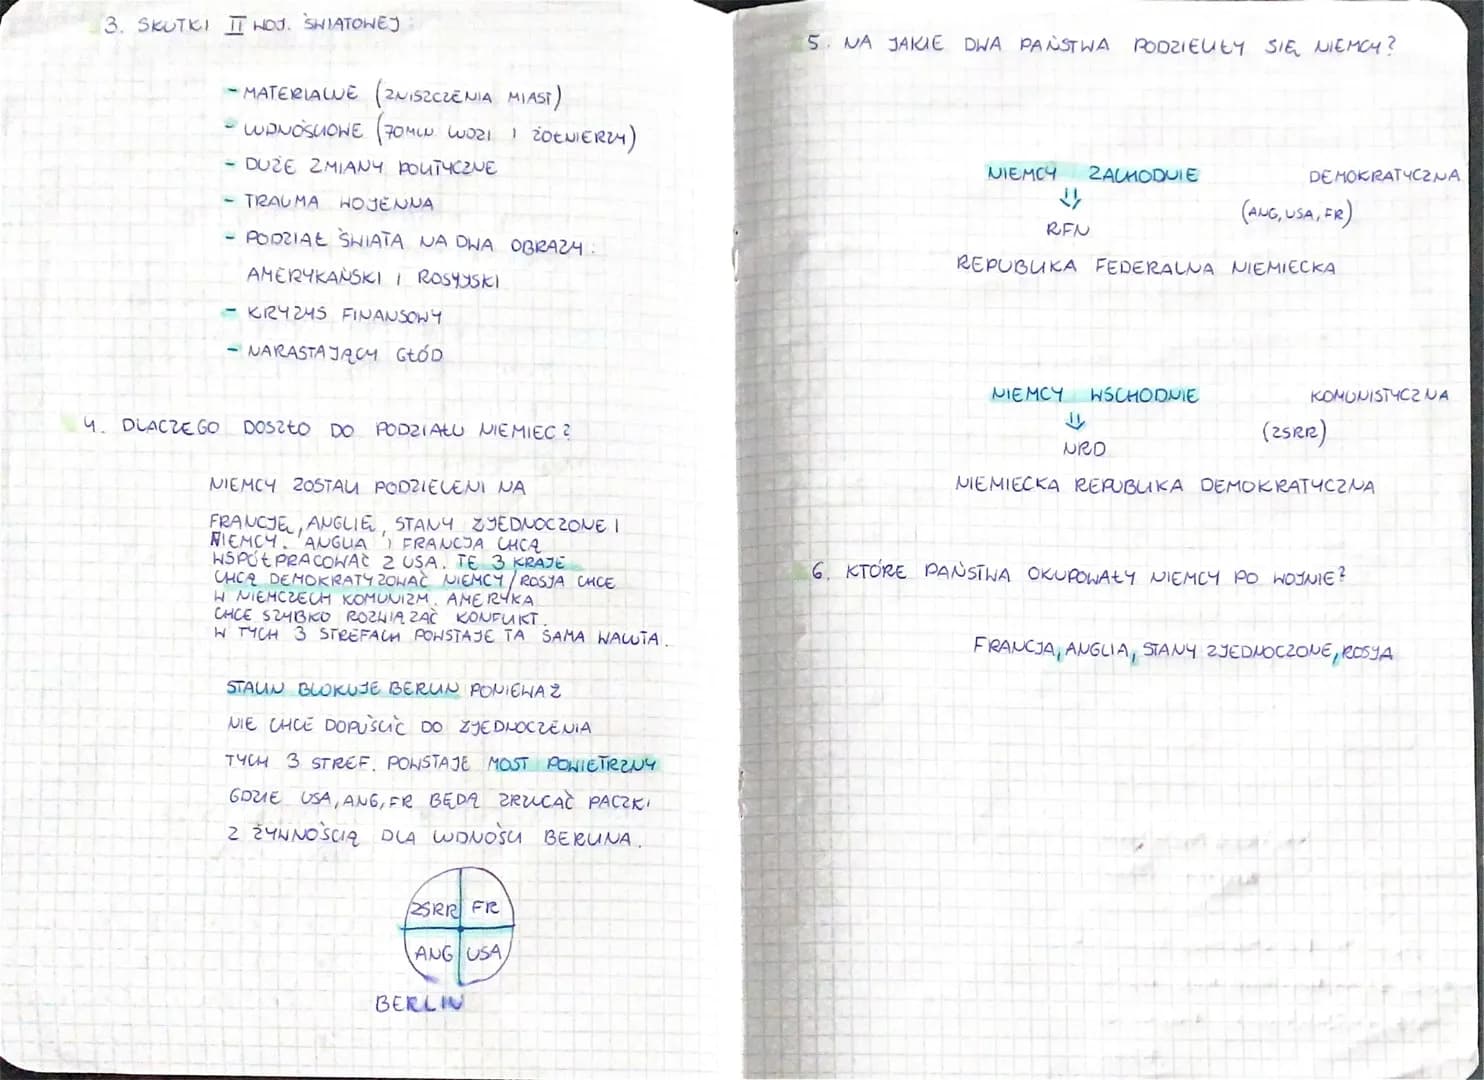 3. SKUTKI II WOJ. ŚWIATOWEJ:
- MATERIALNE (ZNISZCZENIA MIAST)
- LUDNOŚCIOWE (70MLN LUDZI I ŻOŁNIERZY)
- DUŻE ZMIANY POLITYCZNE
- TRAUMA WOJENNA
- PODZIAŁ ŚWIATA NA DWA OBRAZY:
AMERYKAŃSKI I ROSYJSKI
- KRYZYS FINANSOWY
- NARASTAJĄCY GŁÓD
4. DLACZEGO DOSZŁO DO PODZIAŁU NIEMIEC?
NIEMCY ZOSTALI PODZIELENI NA
FRANCJĘ, ANGLIĘ, STANY ZJEDNOCZONE I
NIEMCY. ANGLIA I FRANCJA CHCĄ
WSPÓŁPRACOWAĆ Z USA. TE 3 KRAJE
CHCĄ DEMOKRATYZOWAĆ NIEMCY/ROSJA CHCE
W NIEMCZECH KOMUNIZM. AMERYKA
CHCE SZYBKO ROZWIĄZAĆ KONFLIKT.
W TYCH 3 STREFACH POWSTAJE TA SAMA WALUTA.
STALIN BLOKUJE BERLIN PONIEWAŻ
NIE CHCE DOPUŚCIĆ DO ZJEDNOCZENIA
TYCH 3 STREF. POWSTAJE MOST POWIETRZNY
GDZIE USA, ANG, FR BĘDĄ ZRZUCAĆ PACZKI
Z ŻYWNOŚCIĄ DLA LUDNOŚCI BERLINA.
ZSRR FR
ANG USA
BERLIN
5. NA JAKIE DWA PAŃSTWA PODZIELIŁY SIĘ NIEMCY?
NIEMCY ZACHODNIE DEMOKRATYCZNA
⇓ (ANG, USA, FR)
RFN
REPUBLIKA FEDERALNA NIEMIECKA
NIEMCY WSCHODNIE KOMUNISTYCZNA
⇓ (ZSRR)
NRD
NIEMIECKA REPUBLIKA DEMOKRATYCZNA
6. KTÓRE PAŃSTWA OKUPOWAŁY NIEMCY PO WOJNIE?
FRANCJA, ANGLIA, STANY ZJEDNOCZONE, ROSJA